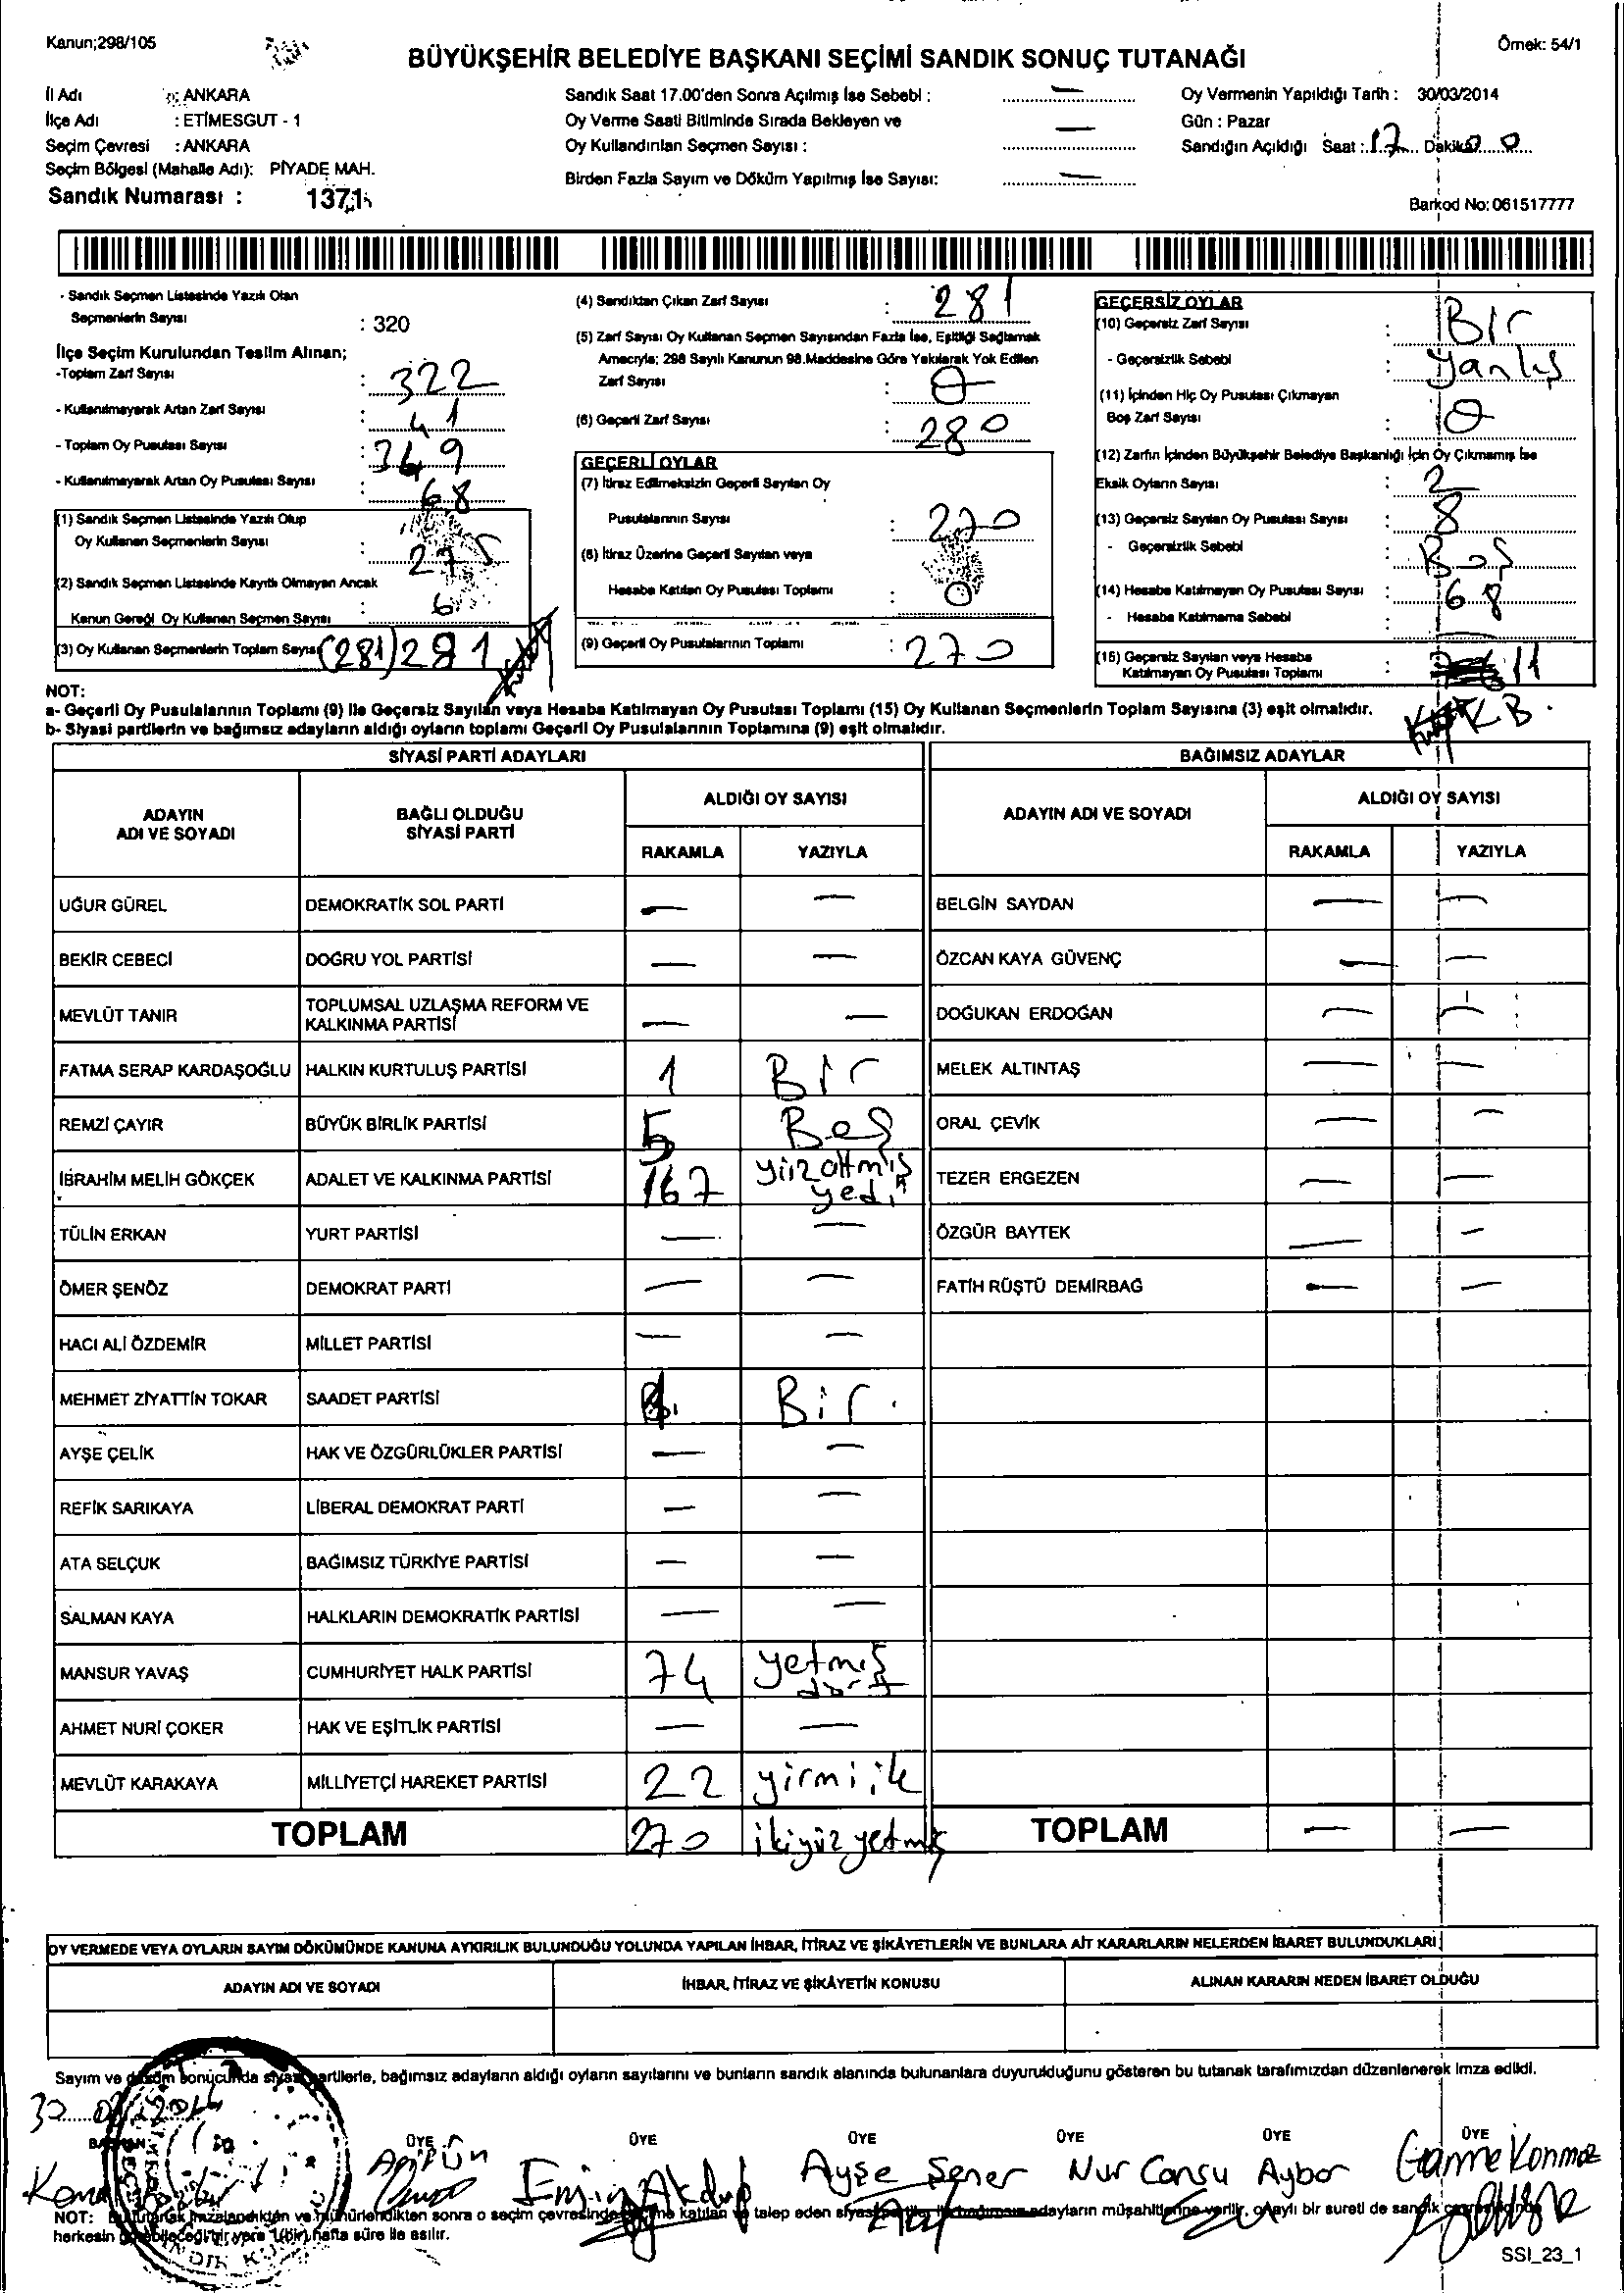 Kanun;298/105
Örnek: 54/1
BÜYÜKŞEHİR BELEDİYE BAŞKANI SEÇİMİ SANDIK SONUÇ TUTANAĞI
İl Adı : ANKARA
İlçe Adı : ETİMESGUT - 1
Seçim Çevresi : ANKARA
Seçim Bölgesi (Mahalle Adı): PİYADE MAH.
Sandık Numarası : 1371
Sandık Saat 17.00'den Sonra Açılmış İse Sebebi : —
Oy Verme Saati Bitiminde Sırada Bekleyen ve
Oy Kullandırılan Seçmen Sayısı : —
Birden Fazla Sayım ve Döküm Yapılmış İse Sayısı: —
Oy Vermenin Yapıldığı Tarih : 30/03/2014
Gün : Pazar
Sandığın Açıldığı Saat : 17 Dakika 00
Barkod No: 061517777
- Sandık Seçmen Listesinde Yazılı Olan
Seçmenlerin Sayısı : 320
İlçe Seçim Kurulundan Teslim Alınan;
-Toplam Zarf Sayısı : 322
- Kullanılmayarak Artan Zarf Sayısı : 41
- Toplam Oy Pusulası Sayısı : 349
- Kullanılmayarak Artan Oy Pusulası Sayısı : 68
(1) Sandık Seçmen Listesinde Yazılı Olup
Oy Kullanan Seçmenlerin Sayısı : 275
(2) Sandık Seçmen Listesinde Kayıtlı Olmayan Ancak
Kanun Gereği Oy Kullanan Seçmen Sayısı : 6
(3) Oy Kullanan Seçmenlerin Toplam Sayısı (281) 281
(4) Sandıktan Çıkan Zarf Sayısı : 281
(5) Zarf Sayısı Oy Kullanan Seçmen Sayısından Fazla İse, Eşitliği Sağlamak
Amacıyla; 298 Sayılı Kanunun 98.Maddesine Göre Yakılarak Yok Edilen
Zarf Sayısı : 0
(6) Geçerli Zarf Sayısı : 280
GEÇERLİ OYLAR
(7) İtiraz Edilmeksizin Geçerli Sayılan Oy
Pusulalarının Sayısı : 270
(8) İtiraz Üzerine Geçerli Sayılan veya
Hesaba Katılan Oy Pusulası Toplamı : 0
(9) Geçerli Oy Pusulalarının Toplamı : 270
GEÇERSİZ OYLAR
(10) Geçersiz Zarf Sayısı : Bir
- Geçersizlik Sebebi : Yanlış
(11) İçinden Hiç Oy Pusulası Çıkmayan
Boş Zarf Sayısı : 0
(12) Zarfın İçinden Büyükşehir Belediye Başkanlığı İçin Oy Çıkmamış İse
Eksik Oyların Sayısı : 2
(13) Geçersiz Sayılan Oy Pusulası Sayısı : 8
- Geçersizlik Sebebi : Boş
(14) Hesaba Katılmayan Oy Pusulası Sayısı : 68
- Hesaba Katılmama Sebebi :
(15) Geçersiz Sayılan veya Hesaba
Katılmayan Oy Pusulası Toplamı : 11
K.B.
NOT:
a- Geçerli Oy Pusulalarının Toplamı (9) ile Geçersiz Sayılan veya Hesaba Katılmayan Oy Pusulası Toplamı (15) Oy Kullanan Seçmenlerin Toplam Sayısına (3) eşit olmalıdır.
b- Siyasi partilerin ve bağımsız adayların aldığı oyların toplamı Geçerli Oy Pusulalarının Toplamına (9) eşit olmalıdır.
SİYASİ PARTİ ADAYLARI
BAĞIMSIZ ADAYLAR
ADAYIN ADI VE SOYADI
BAĞLI OLDUĞU SİYASİ PARTİ
ALDIĞI OY SAYISI
RAKAMLA YAZIYLA
ADAYIN ADI VE SOYADI
ALDIĞI OY SAYISI
RAKAMLA YAZIYLA
UĞUR GÜREL DEMOKRATİK SOL PARTİ — — BELGİN SAYDAN — —
BEKİR CEBECİ DOĞRU YOL PARTİSİ — — ÖZCAN KAYA GÜVENÇ — —
MEVLÜT TANIR TOPLUMSAL UZLAŞMA REFORM VE KALKINMA PARTİSİ — — DOĞUKAN ERDOĞAN — —
FATMA SERAP KARDAŞOĞLU HALKIN KURTULUŞ PARTİSİ 1 Bir MELEK ALTINTAŞ — —
REMZİ ÇAYIR BÜYÜK BİRLİK PARTİSİ 5 Beş ORAL ÇEVİK — —
İBRAHİM MELİH GÖKÇEK ADALET VE KALKINMA PARTİSİ 167 yüzaltmış yedi TEZER ERGEZEN — —
TÜLİN ERKAN YURT PARTİSİ — — ÖZGÜR BAYTEK — —
ÖMER ŞENÖZ DEMOKRAT PARTİ — — FATİH RÜŞTÜ DEMİRBAĞ — —
HACI ALİ ÖZDEMİR MİLLET PARTİSİ — —
MEHMET ZİYATTİN TOKAR SAADET PARTİSİ 1 Bir.
AYŞE ÇELİK HAK VE ÖZGÜRLÜKLER PARTİSİ — —
REFİK SARIKAYA LİBERAL DEMOKRAT PARTİ — —
ATA SELÇUK BAĞIMSIZ TÜRKİYE PARTİSİ — —
SALMAN KAYA HALKLARIN DEMOKRATİK PARTİSİ — —
MANSUR YAVAŞ CUMHURİYET HALK PARTİSİ 74 yetmiş dört
AHMET NURİ ÇOKER HAK VE EŞİTLİK PARTİSİ — —
MEVLÜT KARAKAYA MİLLİYETÇİ HAREKET PARTİSİ 22 yirmi ik
TOPLAM 270 ikiyüz yetmiş TOPLAM — —
OY VERMEDE VEYA OYLARIN SAYIM DÖKÜMÜNDE KANUNA AYKIRILIK BULUNDUĞU YOLUNDA YAPILAN İHBAR, İTİRAZ VE ŞİKÂYETLERİN VE BUNLARA AİT KARARLARIN NELERDEN İBARET BULUNDUKLARI
ADAYIN ADI VE SOYADI İHBAR, İTİRAZ VE ŞİKÂYETİN KONUSU ALINAN KARARIN NEDEN İBARET OLDUĞU
Sayım ve döküm sonucunda siyasi partilerle, bağımsız adayların aldığı oyların sayılarını ve bunların sandık alanında bulunanlara duyurulduğunu gösteren bu tutanak tarafımızdan düzenlenerek imza edildi.
30 03 2014
BAŞKAN ÜYE ÜYE ÜYE ÜYE ÜYE ÜYE
Emin Akdup Ayşe Şener Nur Cansu Aybar Gamme Konmaz
NOT: Bu tutanak imzalandıktan ve mühürlendikten sonra o seçim çevresinde seçime katılan ve talep eden siyasi partiler ile bağımsız adayların müşahitlerine verilir, onaylı bir sureti de sandık çevresinde
herkesin görebileceği bir yere 1(bir) hafta süre ile asılır.
SSI_23_1